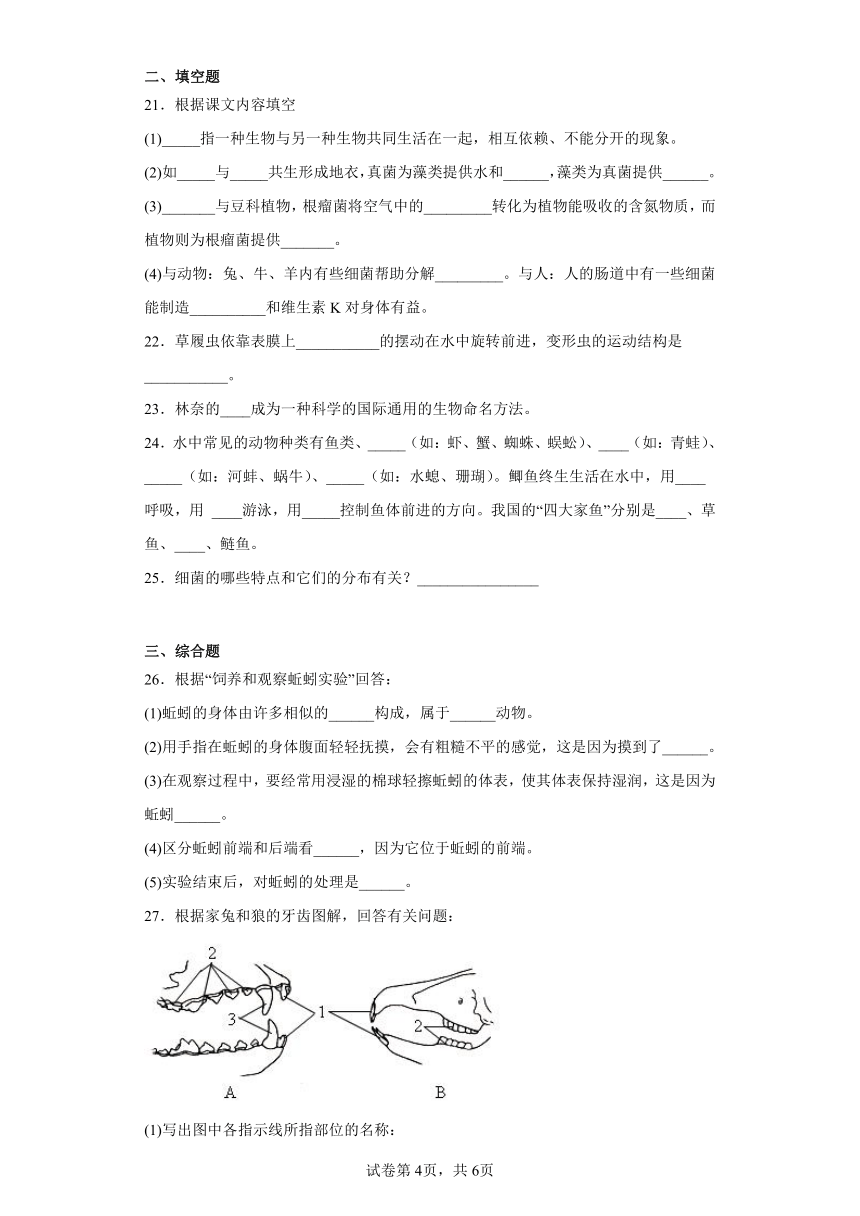 二、填空题
21．根据课文内容填空
(1)_____指一种生物与另一种生物共同生活在一起，相互依赖、不能分开的现象。
(2)如_____与_____共生形成地衣，真菌为藻类提供水和______，藻类为真菌提供______。
(3)_______与豆科植物，根瘤菌将空气中的_________转化为植物能吸收的含氮物质，而
植物则为根瘤菌提供_______。
(4)与动物：兔、牛、羊内有些细菌帮助分解_________。与人：人的肠道中有一些细菌
能制造__________和维生素 K 对身体有益。
22．草履虫依靠表膜上___________的摆动在水中旋转前进，变形虫的运动结构是
___________。
23．林奈的____成为一种科学的国际通用的生物命名方法。
24．水中常见的动物种类有鱼类、_____（如：虾、蟹、蜘蛛、蜈蚣）、____（如：青蛙）、
_____（如：河蚌、蜗牛）、_____（如：水螅、珊瑚）。鲫鱼终生生活在水中，用____
呼吸，用 ____游泳，用_____控制鱼体前进的方向。我国的“四大家鱼”分别是____、草
鱼、____、鲢鱼。
25．细菌的哪些特点和它们的分布有关？________________
三、综合题
26．根据“饲养和观察蚯蚓实验”回答：
(1)蚯蚓的身体由许多相似的______构成，属于______动物。
(2)用手指在蚯蚓的身体腹面轻轻抚摸，会有粗糙不平的感觉，这是因为摸到了______。
(3)在观察过程中，要经常用浸湿的棉球轻擦蚯蚓的体表，使其体表保持湿润，这是因为
蚯蚓______。
(4)区分蚯蚓前端和后端看______，因为它位于蚯蚓的前端。
(5)实验结束后，对蚯蚓的处理是______。
27．根据家兔和狼的牙齿图解，回答有关问题：
2
3
1
2
A
B
(1)写出图中各指示线所指部位的名称：
试卷第 4页，共 6页